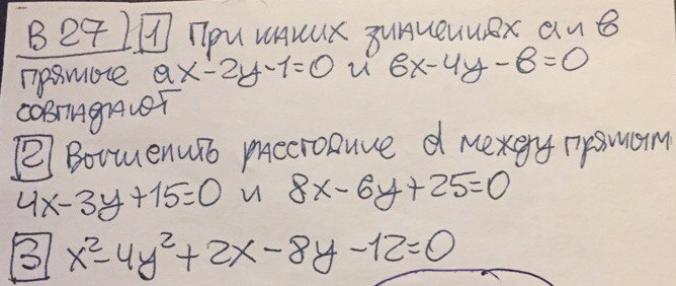 В 27) 1 При каких значениях а и в
прямые ах-2у-1=0 и 6х-4у-в=0
совпадают
2 Вычислить расстояние d между прямым
4х-3у+15=0 и 8х-6у+25=0
3 х²-4у²+2х-8у-12=0